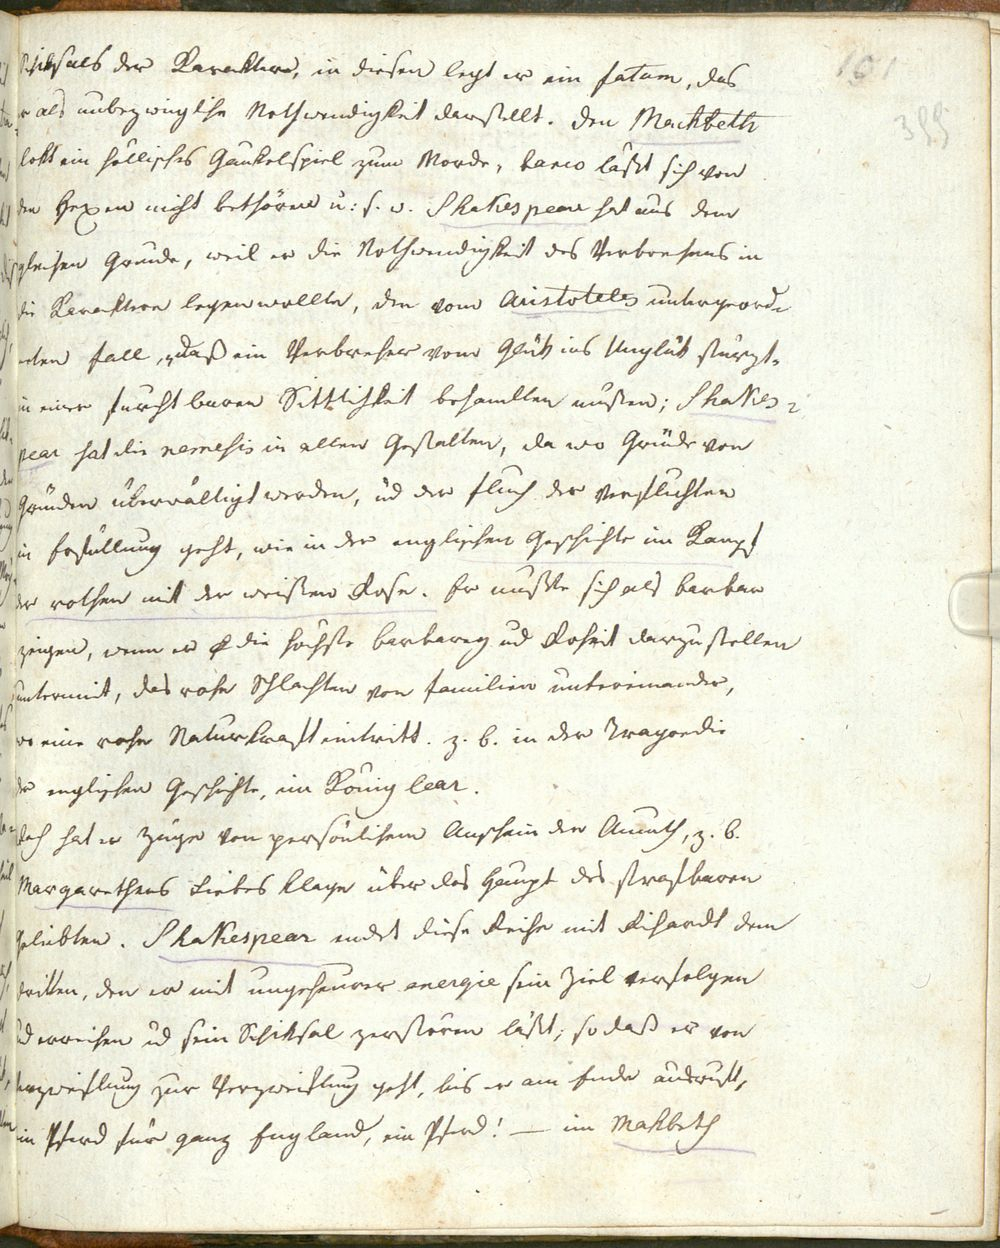 101
399
Schiksals der Karaktere, in diesen legt er ein fatum, das
er als unbezwingliche Nothwendigkeit darstellt. Den Mackbeth
lokt ein höllisches Gaukelspiel zum Morde, banco läßt sich von
den Hexen nicht bethören u: s. w. Shakespear hat aus dem
gleichen Grunde, weil er die Nothwendigkeit des Verbrechens in
die Karaktere legen wollte, den vom Aristoteles untergeord-
neten Fall, „daß ein Verbrecher vom Glük ins Unglük stürzt„
in einer furchtbaren Sittlichkeit behandlen müßen; Shakes-
pear hat die nemesis in allen Gestalten, da wo Gründe von
Gründen überwältigt werden, ud der Fluch der Verfluchten
in Erfüllung geht, wie in der englischen Geschichte im Kampf
der rothen mit der weißen Rose. Er mußte sich als barbar
zeigen, wenn er die höchste barbarey ud Roheit darzustellen
unternimt, das rohe Schlachten von Familien untereinander,
wo eine rohe Naturkraft eintritt. z. b. in der Tragoedie
der englischen Geschichte, im König lear.
doch hat er Züge von persönlichem Anschein der Anmuth, z. b.
Margarethens Liebes klage über das Haupt des strafbaren
Geliebten. Shakespear endet diese Reihe mit Richardt dem
dritten, den er mit ungeheurer energie sein Ziel verfolgen
ud erreichen ud sein Schiksal zerstören läßt; so daß er von
Verzweiflung zur Verzweiflung geht, bis er am Ende ausruft,
ein Pferd für ganz England, ein Pferd! — im Makbeth